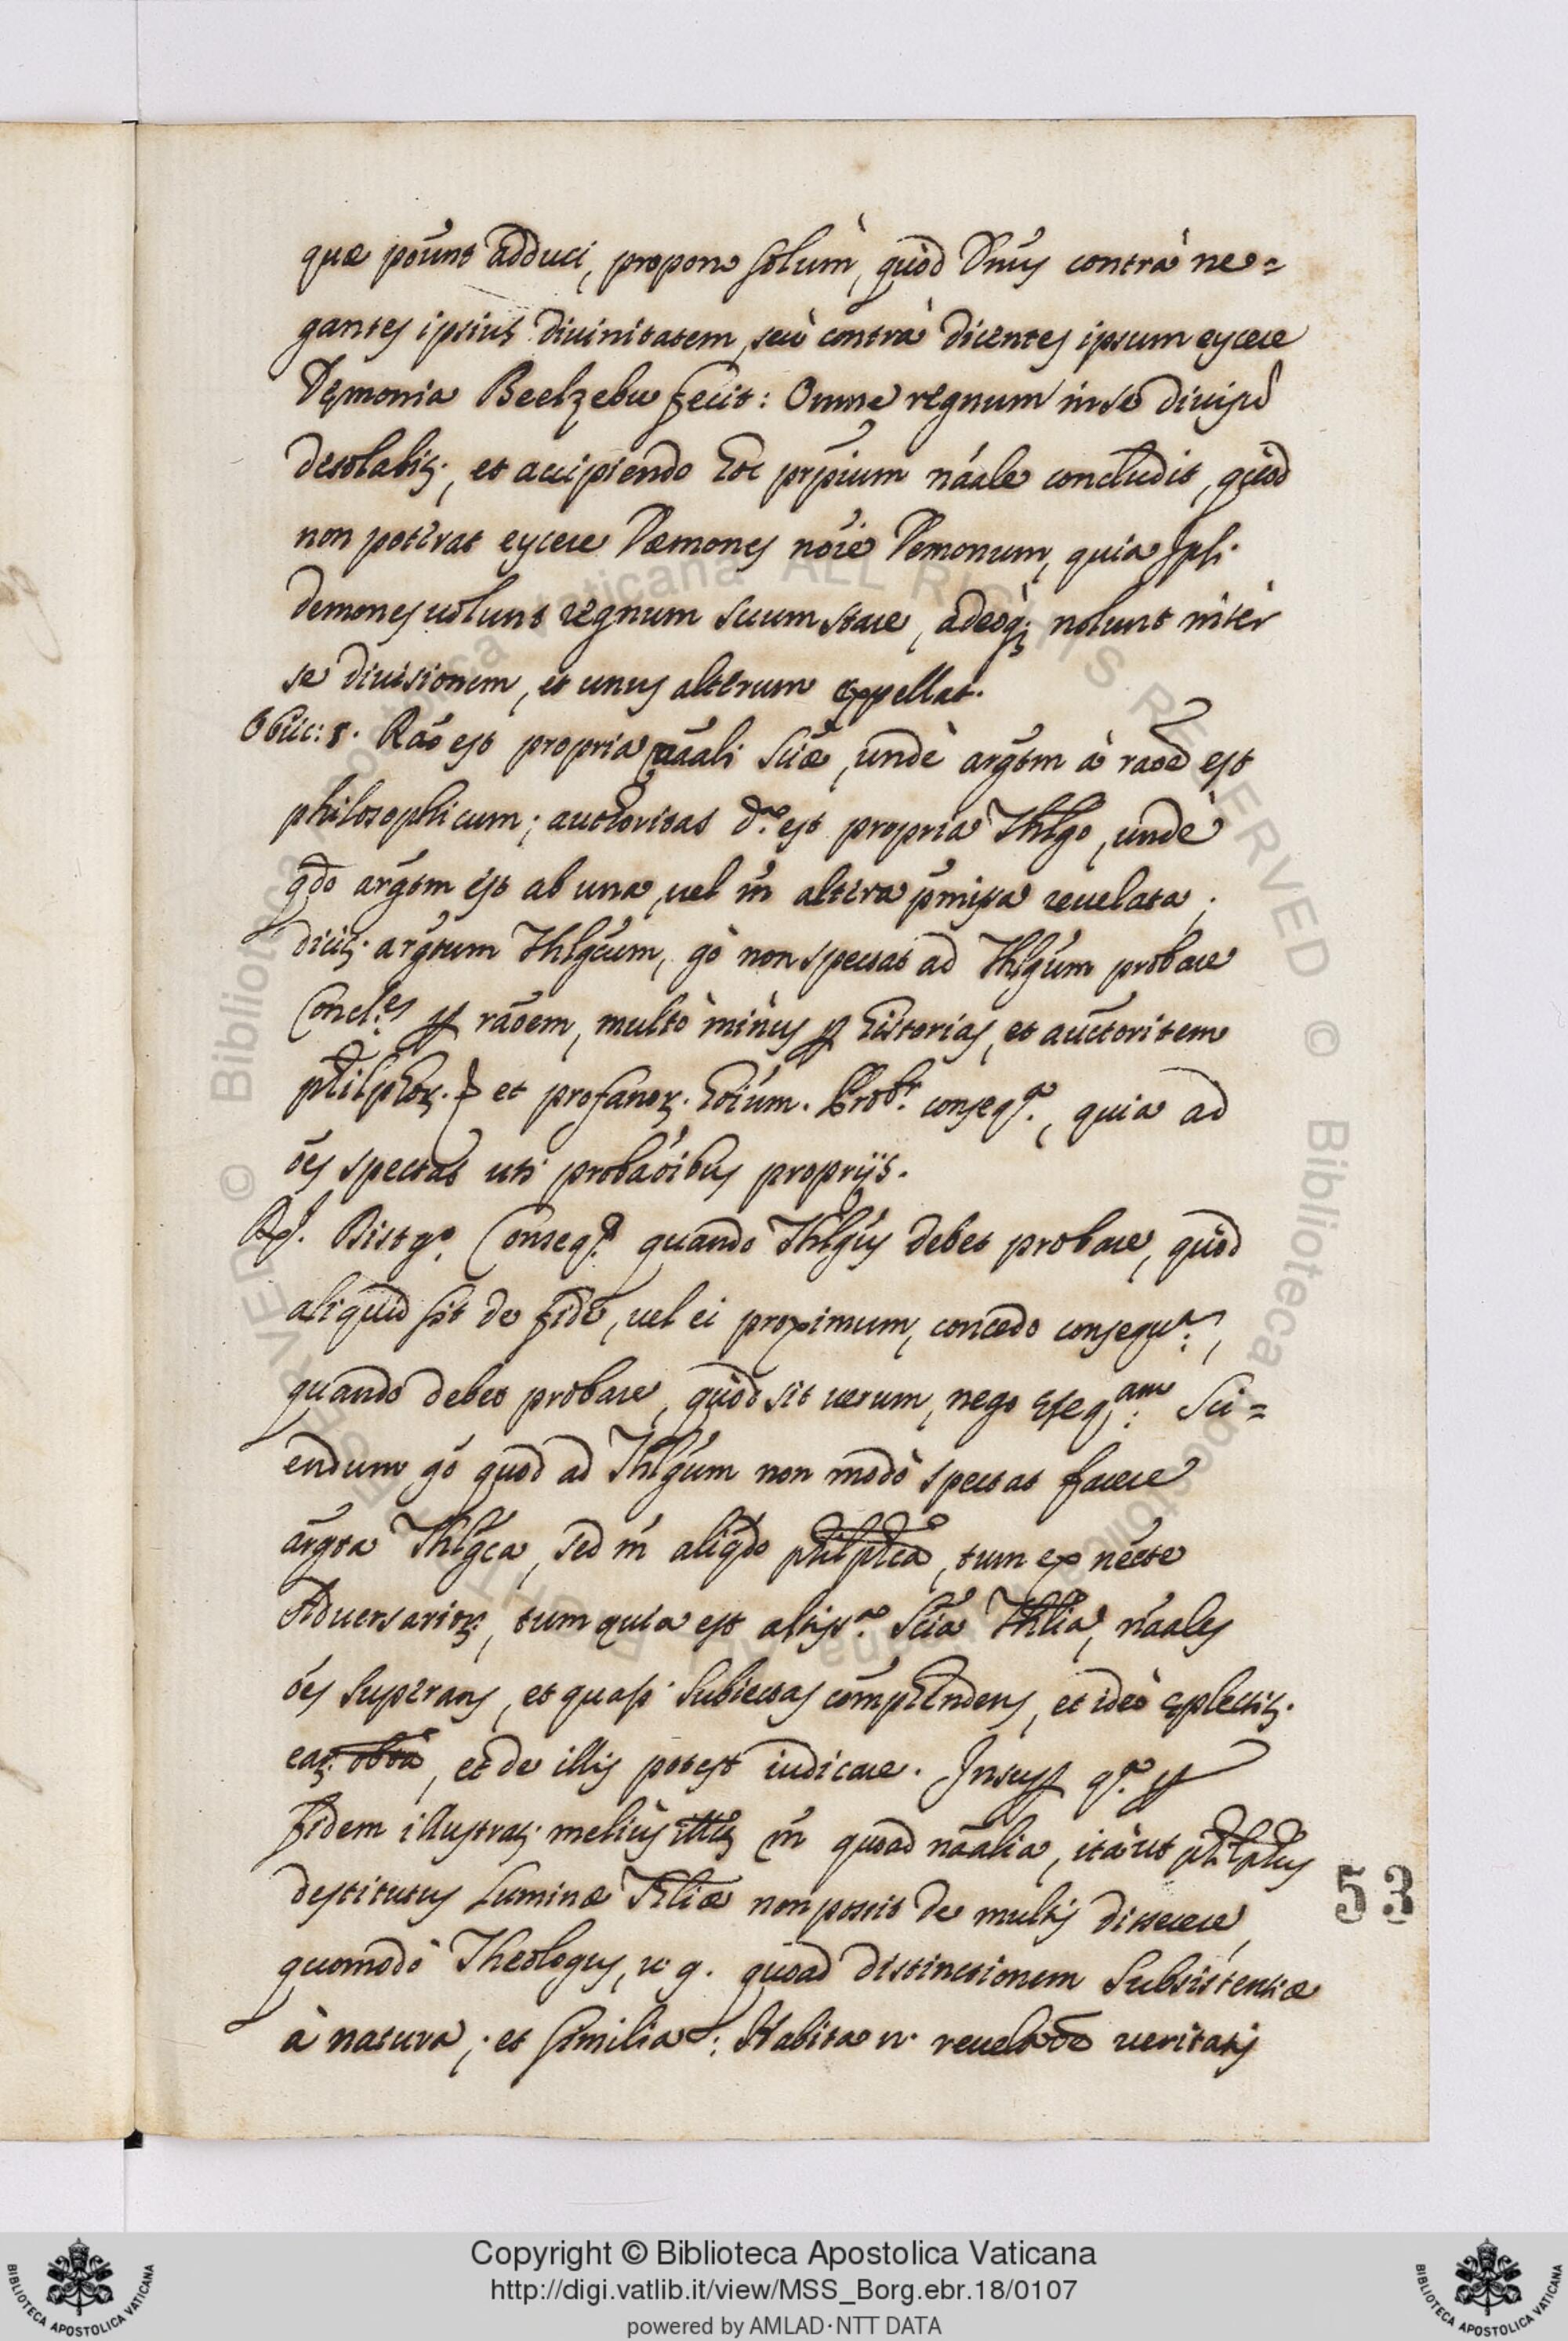 quæ põunt adduci, propono solum, quòd Dñus contrà ne=
gantes ipsius diuinitatem, seù contrà dicentes ipsum eycere
Dęmonia Beelzebu fecit: Omne regnum in se diuisũ
desolabit; et accipiendo hoc prpium náale concludit, quòd
non poterat eycere Dæmones nõie Demonum, quia Ipsi
demones uolunt regnum suum stare, adeoq; nolunt intèr
se diuisionem, et unus alterum expellat.
Obiic: 8. Raõ est propria nãali sciæ, undè argtm à raõe est
philosophicum; auctoritas d.º est propria Thlgo, undè
qdo argtm est ab una, uel m̃ altera p̃missa reuelata,
dicit argtum Thlgcum, gò non spectat ad Thlgum probare
Concl.es per raõem, multò minùs per historias, et auctoritem
philphor. et profanor. hoium. Prob.r conseq.a, quia ad
oẽs spectat uti probaõibus proprijs.
Rs. Distg.o Conseq.a quando Thlgus debet probare, quòd
aliquid sit de fide, uel ei proximum, concedo consequ.a,
quando debet probare, quòd sit uerum, nego cseq.am: Sci=
endum gò quod ad Thlgum non modò spectat facere
argta Thlgca, sed m̃ aliqdo philphca, tum ex nẽcte
Aduersarior., tum quia est altiss.a scia Thlia, nãales
oẽs superans, et quasi subiectas comphendens, et ideò cplectit.
ear. obta, et de illis potest iudicare. Insup q.a per
fidem illustrat meliùs m̃ quoad nãalia, itaùt philphus
destitutus Luminæ Thliæ non possit de multis disserere,
quomodò Theologus, u. g. quoad distinctionem subsistentiæ
à natura; et similia: Habita n. reuelaõe ueritatis
53
Copyright © Biblioteca Apostolica Vaticana
http://digi.vatlib.it/view/MSS_Borg.ebr.18/0107
powered by AMLAD·NTT DATA